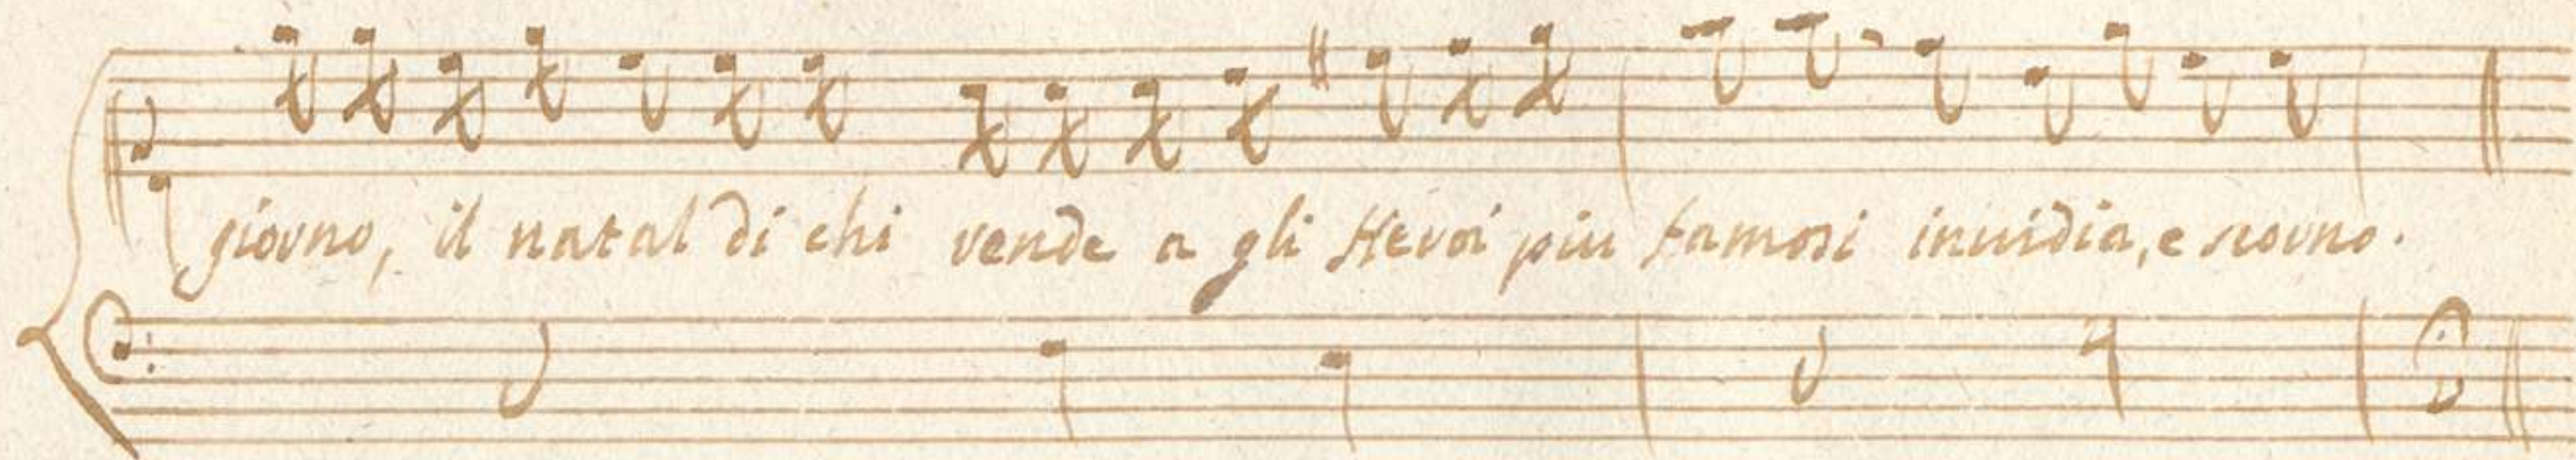 giorno, il natal di chi rende a gli Heroi piu famosi inuidia, e scorno.